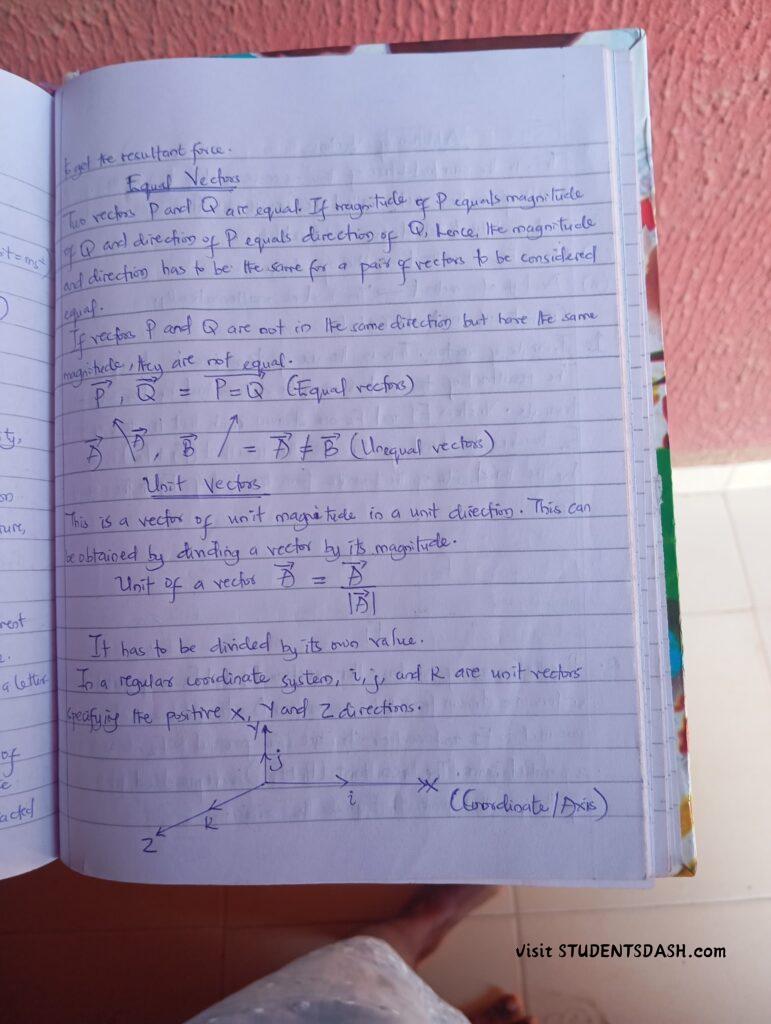 to get the resultant force.
Equal Vectors
Two vectors P and Q are equal. If magnitude of P equals magnitude
of Q and direction of P equals direction of Q, hence, the magnitude
and direction has to be the same for a pair of vectors to be considered
equal.
If vectors P and Q are not in the same direction but have the same
magnitude, they are not equal.
P, Q = P = Q (Equal vectors)
A A, B = A ≠ B (Unequal vectors)
Unit Vectors
This is a vector of unit magnitude in a unit direction. This can
be obtained by dividing a vector by its magnitude.
Unit of a vector A = A
|A|
It has to be divided by its own value.
In a regular coordinate system, i, j, and k are unit vectors
specifying the positive X, Y and Z directions.
Y
j
i
X
(Coordinate/Axis)
k
Z
visit STUDENTSDASH.com